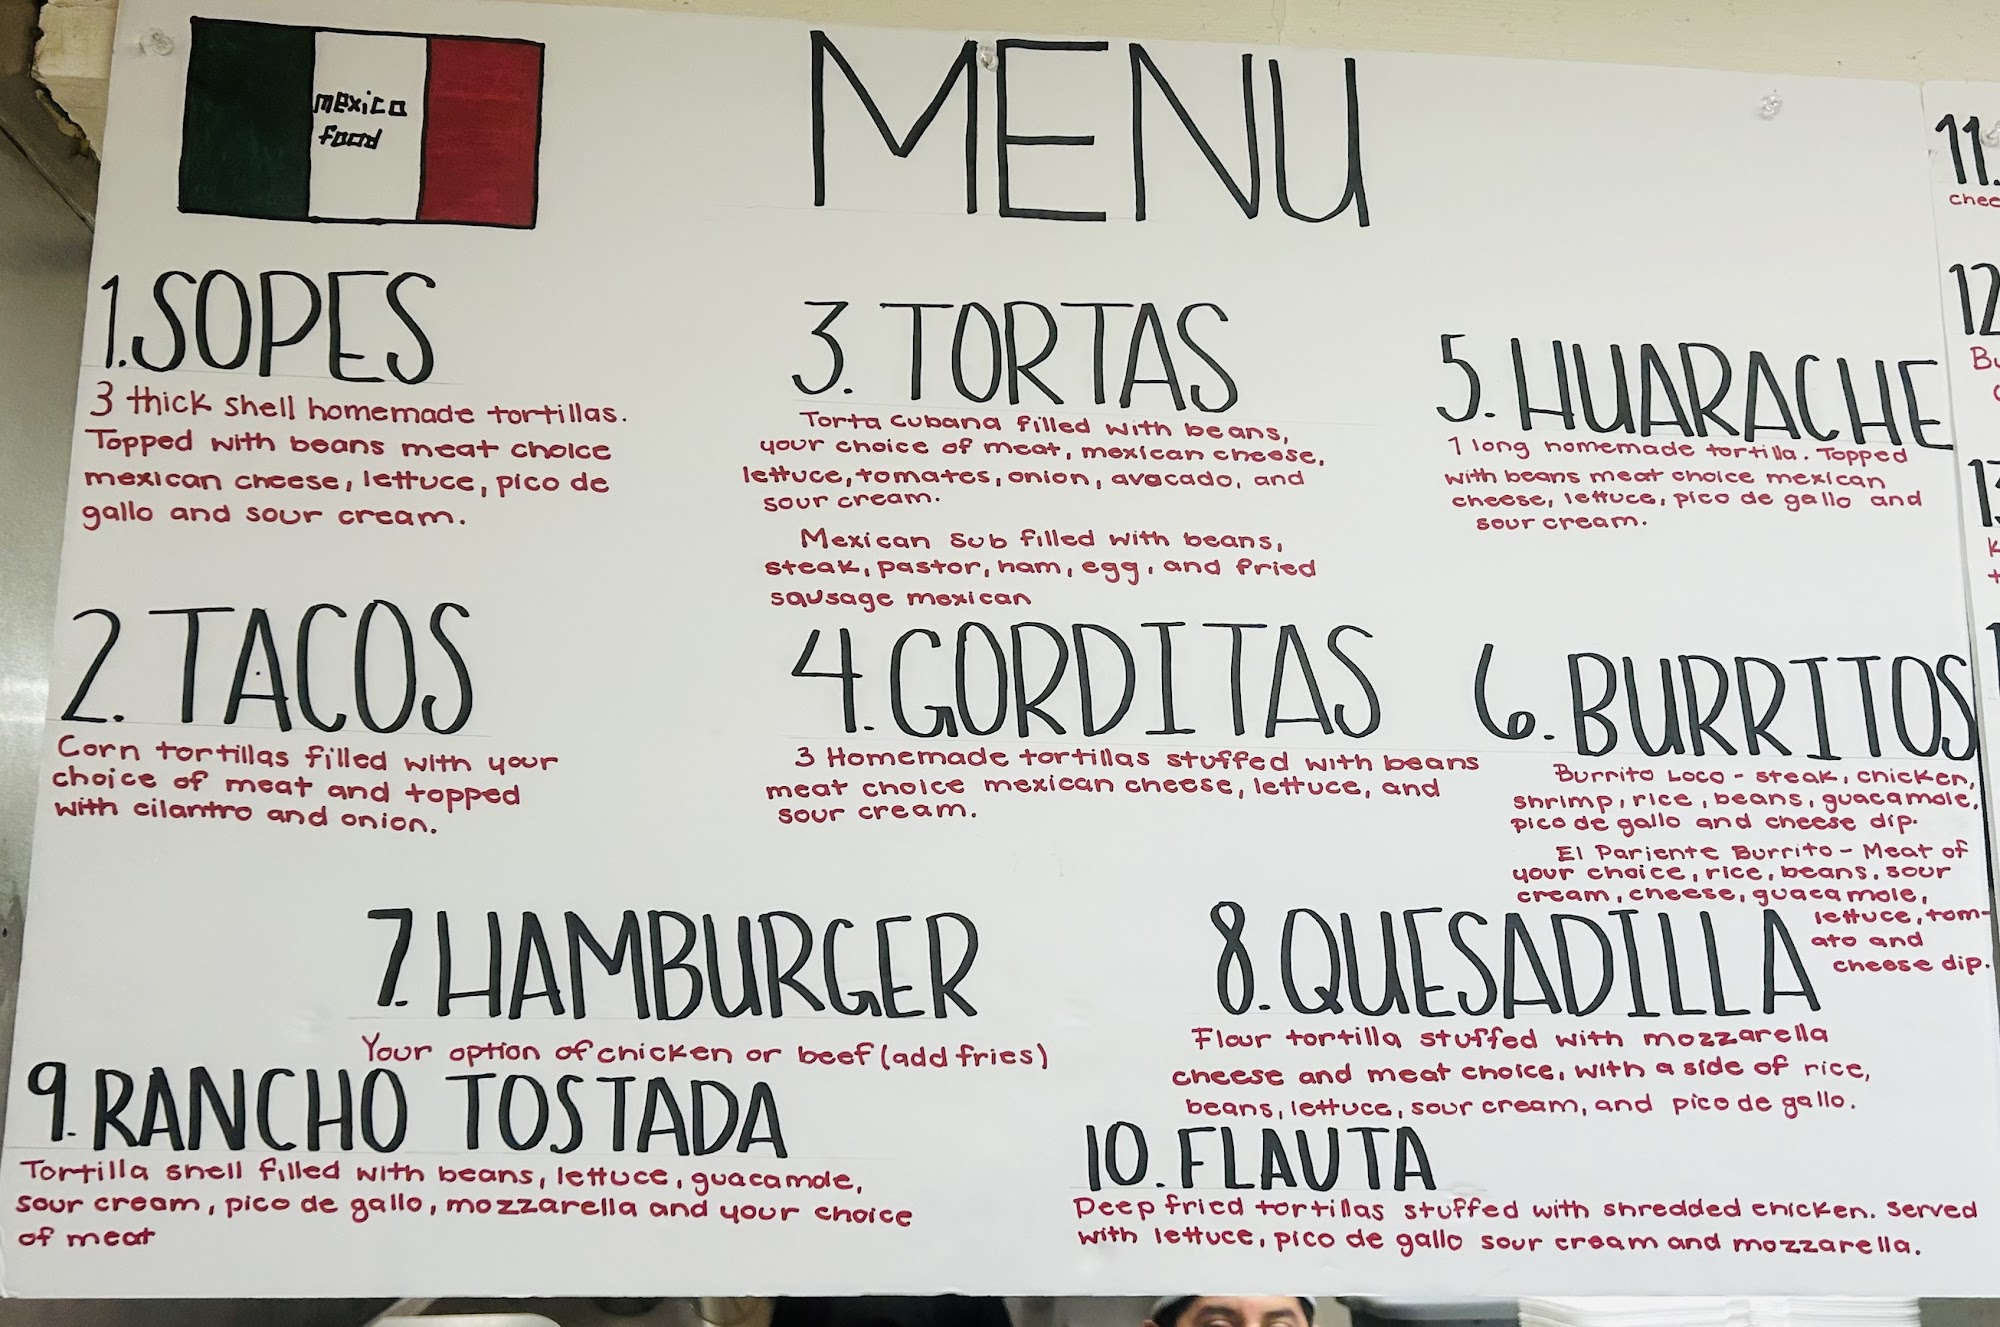 mexico
food
MENU
1. SOPES
3 thick shell homemade tortillas.
Topped with beans meat choice
mexican cheese, lettuce, pico de
gallo and sour cream.
2. TACOS
Corn tortillas filled with your
choice of meat and topped
with cilantro and onion.
3. TORTAS
Torta cubana filled with beans,
your choice of meat, mexican cheese,
lettuce, tomatoes, onion, avacado, and
sour cream.
Mexican sub filled with beans,
steak, pastor, ham, egg, and fried
sausage mexican
4. GORDITAS
3 Homemade tortillas stuffed with beans
meat choice mexican cheese, lettuce, and
sour cream.
5. HUARACHE
1 long homemade tortilla. Topped
with beans meat choice mexican
cheese, lettuce, pico de gallo and
sour cream.
6. BURRITOS
Burrito Loco - steak, chicken,
shrimp, rice, beans, guacamole,
pico de gallo and cheese dip.
El Pariente Burrito - Meat of
your choice, rice, beans, sour
cream, cheese, guacamole,
lettuce, tom-
ato and
cheese dip.
7. HAMBURGER
Your option of chicken or beef (add fries)
8. QUESADILLA
Flour tortilla stuffed with mozzarella
cheese and meat choice, with a side of rice,
beans, lettuce, sour cream, and pico de gallo.
9. RANCHO TOSTADA
Tortilla shell filled with beans, lettuce, guacamole,
sour cream, pico de gallo, mozzarella and your choice
of meat
10. FLAUTA
Deep fried tortillas stuffed with shredded chicken. Served
with lettuce, pico de gallo sour cream and mozzarella.
11.
12